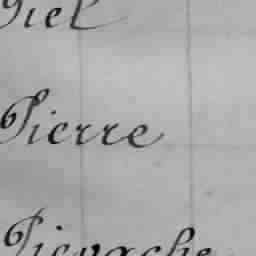 Piel
Pierre
Pievache